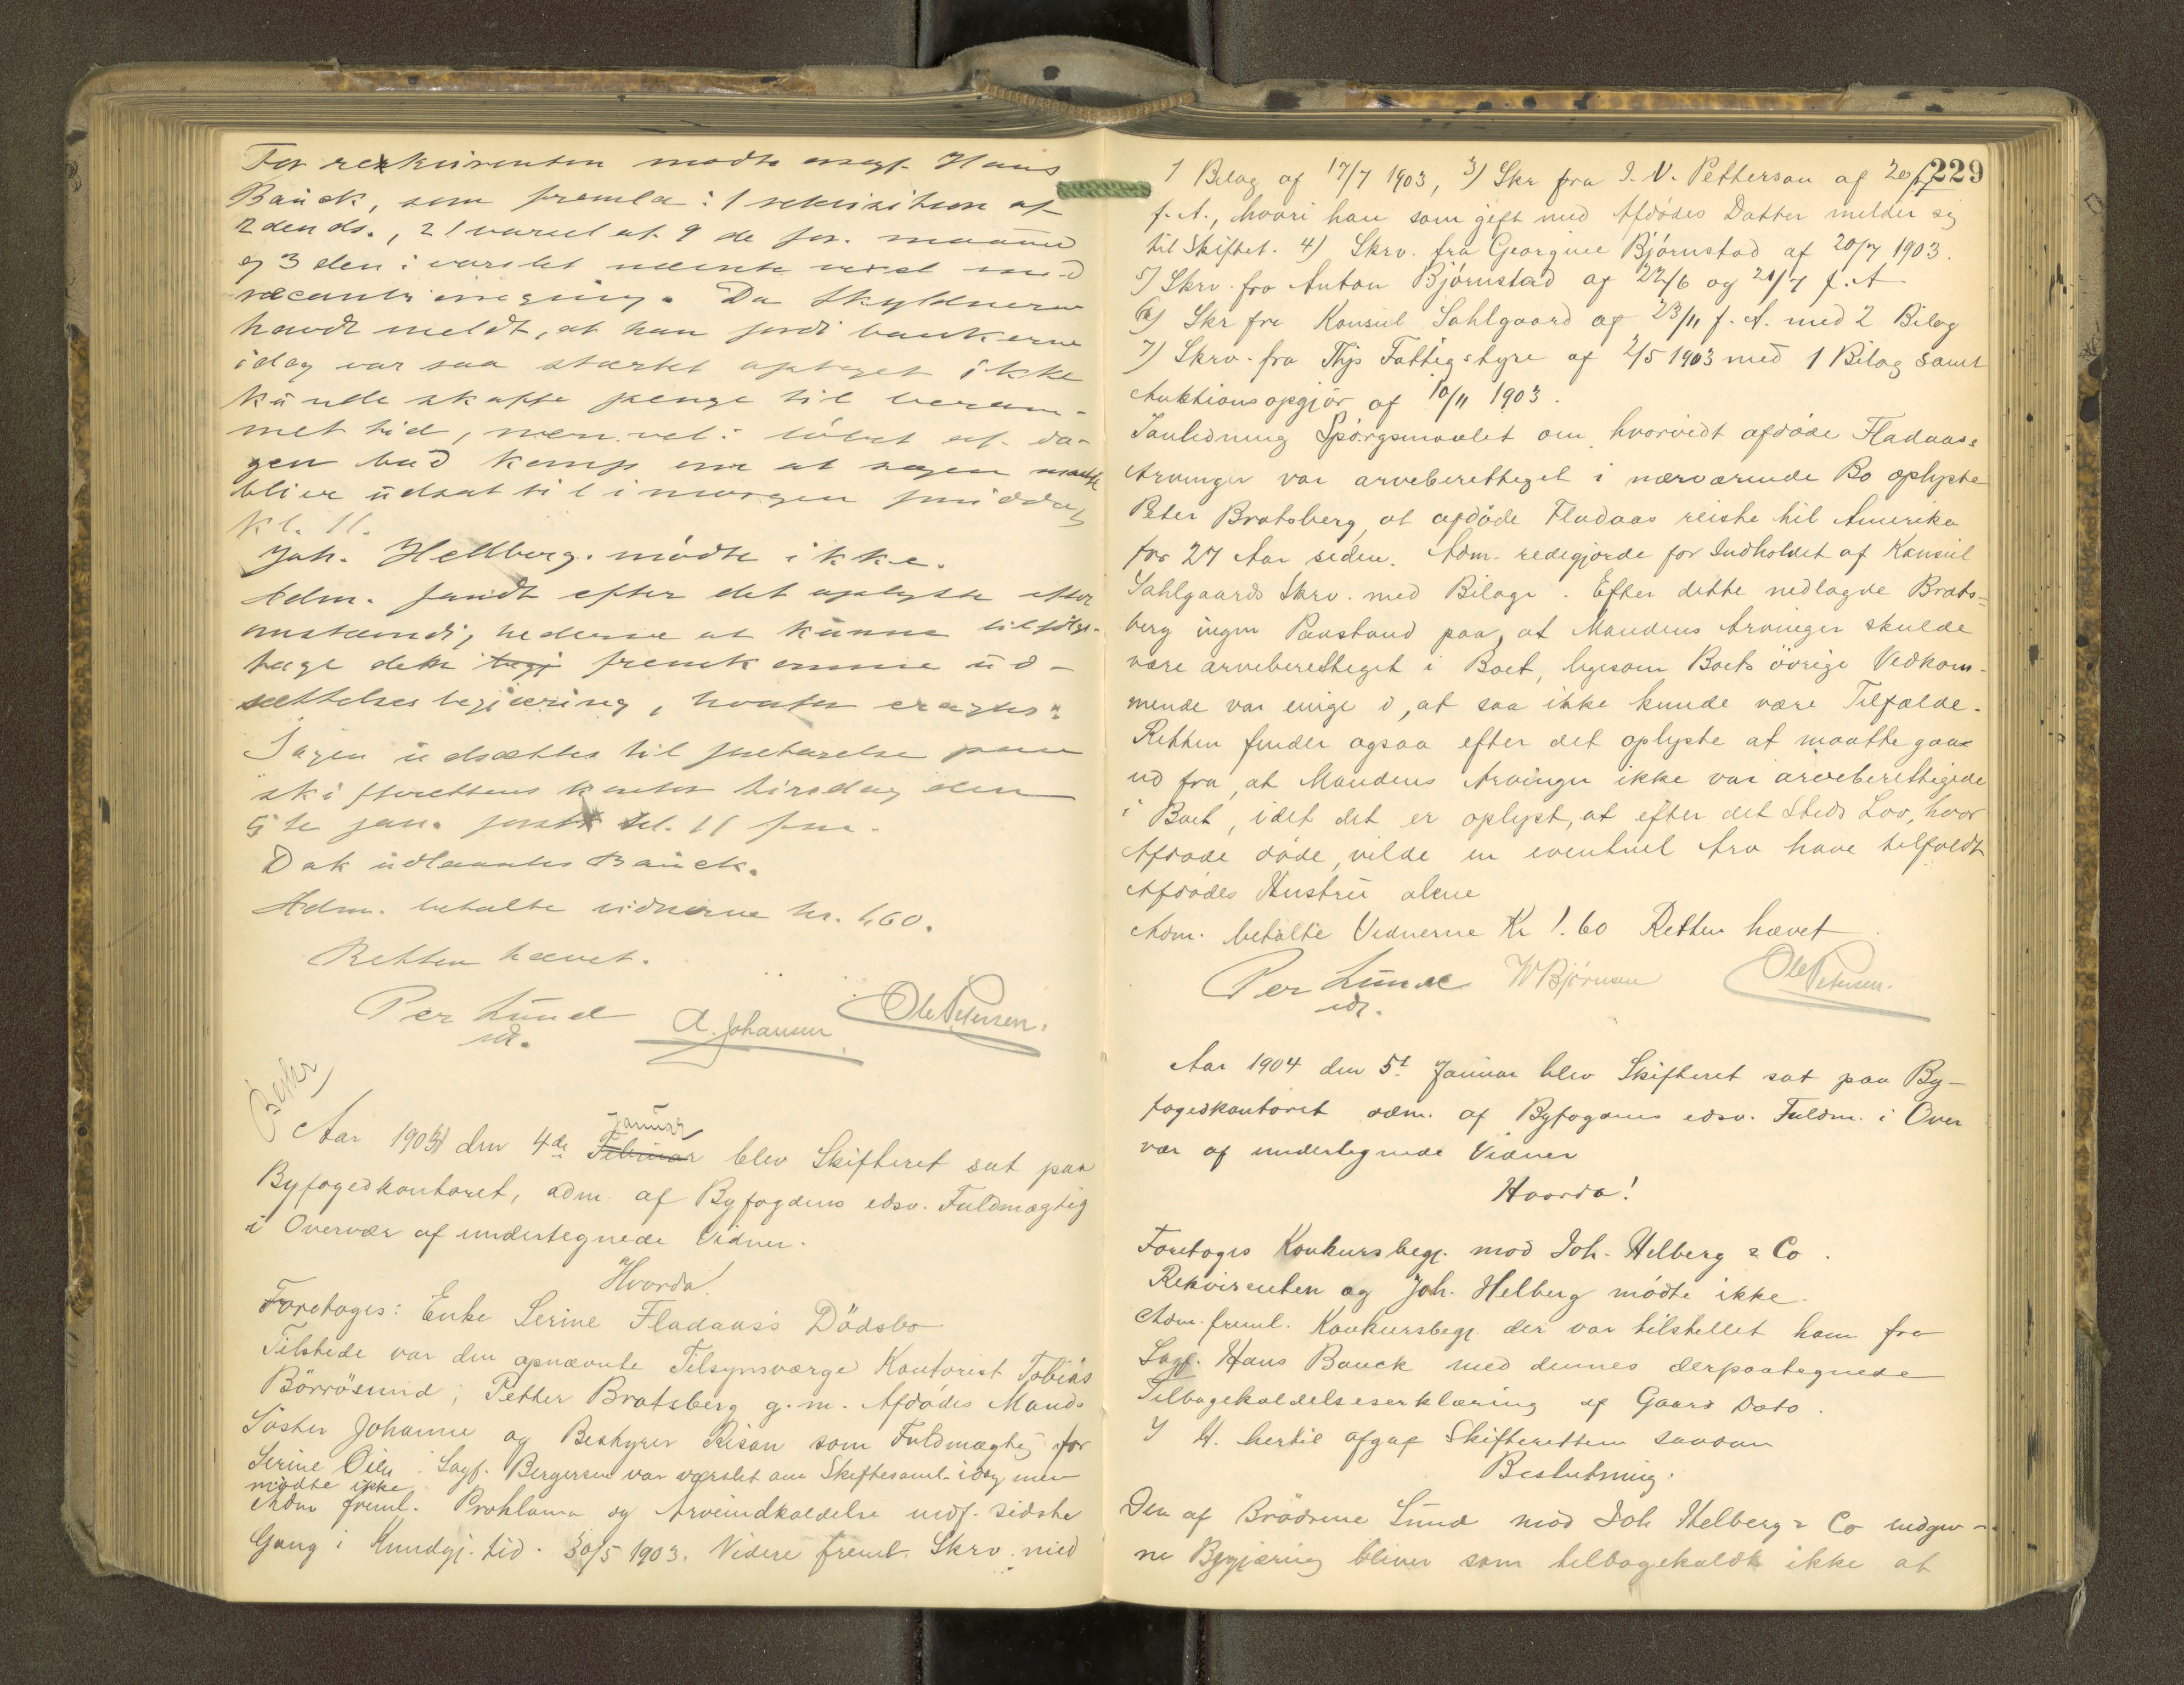 For rekvirenten mødte sagf. Hans
Bauck, som fremla: 1 rekvisition af
2den ds., 2 1 varsel af 9de for. maaned
og 3 den i varslet nævnte veksel med
vecantegning. Da skyldneren
havde meldt, at han fordi bankerne
idag var saa stærkt optaget ikke
kunde skaffe penge til beram-
met tid, men vel i løbet af da-
gen bad komp om at sagen maatte
blive udsat til imorgen formiddag
kl. 11.
Joh. Hellberg mødte ikke.
Adm. fandt efter det oplyste efter
omstændighederne at kunne tilfølge-
tage den fremkomne ud-
sættelsesbegjæring, hvorfor eragtes:
Sagen udsættes til foretagelse paa
skifterettens kontor tirsdag den
5te jan. førstk kl. 11 fm.
Dok udlaantes Bauck.
Adm. betalte vidnerne kr. 1,60.
Retten hævet.
Per Lund
edsv.
A. Johansen
Ole Petersen.
Beskr
Januar
Aar 1904 den 4de Februar blev Skifteret sat paa
Byfogedkontoret, adm. af Byfogdens edsv. Fuldmægtig
i Overvær af undertegnede Vidner.
Hvorda!
Foretoges: Enke Serine Fladaas's Dödsbo
Tilstede var den opnævnte Tilsynsværge Kontorist Tobias
Börrösund; Petter Bratsberg g. m. Afdødes Mands
Söster Johanne og Bestyrer Risan som Fuldmægtig for
Serine Oilu. Sagf. Bergersen var varslet om Skiftesaml. idag men
mødte ikke
Adm freml. Proklama og Arveindkaldelse indf. sidste
Gang i Kundgj. tid. 30/5 1903. Videre freml. Skrv. med
229
1 Bilag af 17/7 1903, 3) Skr fra I. V. Petterson af 20/7
f. A., hvori han som gift med Afdödes Datter melder sig
til Skiftet. 4) Skrv. fra Georgine Bjørnstad af 20/7 1903.
5) Skrv. fra Anton Bjørnstad af 22/6 og 21/7 f. A
6) Skr fra Konsul Sahlgaard af 23/11 f. A. med 2 Bilag
7) Skrv. fra Thjs Fattigstyre af 2/5 1903 med 1 Bilag samt
Auktionsopgjör af 10/11 1903.
I anledning Spörgsmaalet om hvorvidt afdöde Fladaas's
Arvinger var arveberettiget i nærværende Bo oplyste
Peter Bratsberg, at afdöde Fladaas reiste til Amerika
for 27 Aar siden. Adm. redegjorde for Indholdet af Konsul
Sahlgaards Skrv. med Bilage. Efter dette nedlagde Brats-
berg ingen Paastand paa, at Mandens Arvinger skulde
være arveberettiget i Boet, ligesom Boets övrige Vedkom-
mende var enige i, at saa ikke kunde være Tilfælde.
Retten finder ogsaa efter det oplyste at maatte gaa
ud fra, at Mandens Arvinger ikke var arveberettigede
i Boet, idet det er oplyst, at efter det Steds Lov, hvor
Afdøde døde, vilde en eventuel Arv have tilfaldt
Afdødes Hustru alene
Adm. betalte Vidnerne Kr 1.60 Retten hævet
Per Lund
edsv.
W Bjørnsen
Ole Petersen.
Aar 1904 den 5t Januar blev Skifteret sat paa By-
fogedkontoret adm. af Byfogdens edsv. Fuldm. i Over
vær af undertegnede Vidner
Hvorda!
Foretoges Konkursbegj. mod Joh. Helberg & Co.
Rekvirenten og Joh. Helberg mødte ikke.
Adm. freml. Konkursbegj. der var tilstillet ham fra
Sagf. Hans Bauck med dennes derpaategnede
Tilbagekaldelseserklæring af Gaars Dato.
I H. hertil afgaf Skifteretten saadan
Beslutning:
Den af Brödrene Lund mod Joh Helberg & Co indgiv-
ne Begjæring bliver som tilbagekaldt ikke at